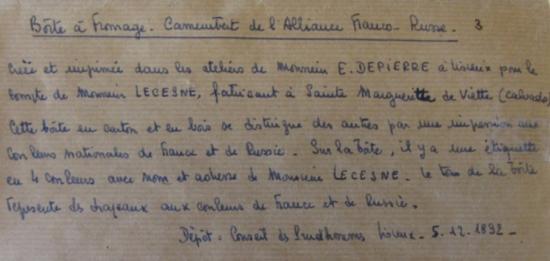 Boîte à fromage - Camembert de l'Alliance Franco-Russe. 3
Créée et imprimée dans les ateliers de Monsieur E. DEPIERRE à Lisieux pour le
compte de Monsieur LECESNE, fabricant à Sainte Marguerite de Viette (calvados)
Cette boîte en carton et en bois se distingue des autres par une impression aux
couleurs nationales de France et de Russie. Sur la boîte, il y a une étiquette
en 4 couleurs avec nom et adresse de Monsieur LECESNE. Le tour de la boîte
représente des drapeaux aux couleurs de France et de Russie.
Dépôt : Conseil des Prudhommes Lisieux - 5.12.1892 -